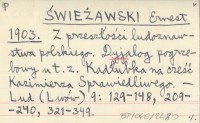 ŚWIEŻAWSKI Ernest
1903. Z przeszłości ludoznaw-
stwa polskiego. Dyjalog pogrze-
bowy u t. z. Kadłubka na cześć
Kazimierza Sprawiedliwego.
Lud (Lwów) 9: 129-148, 209-
-240, 321-349.